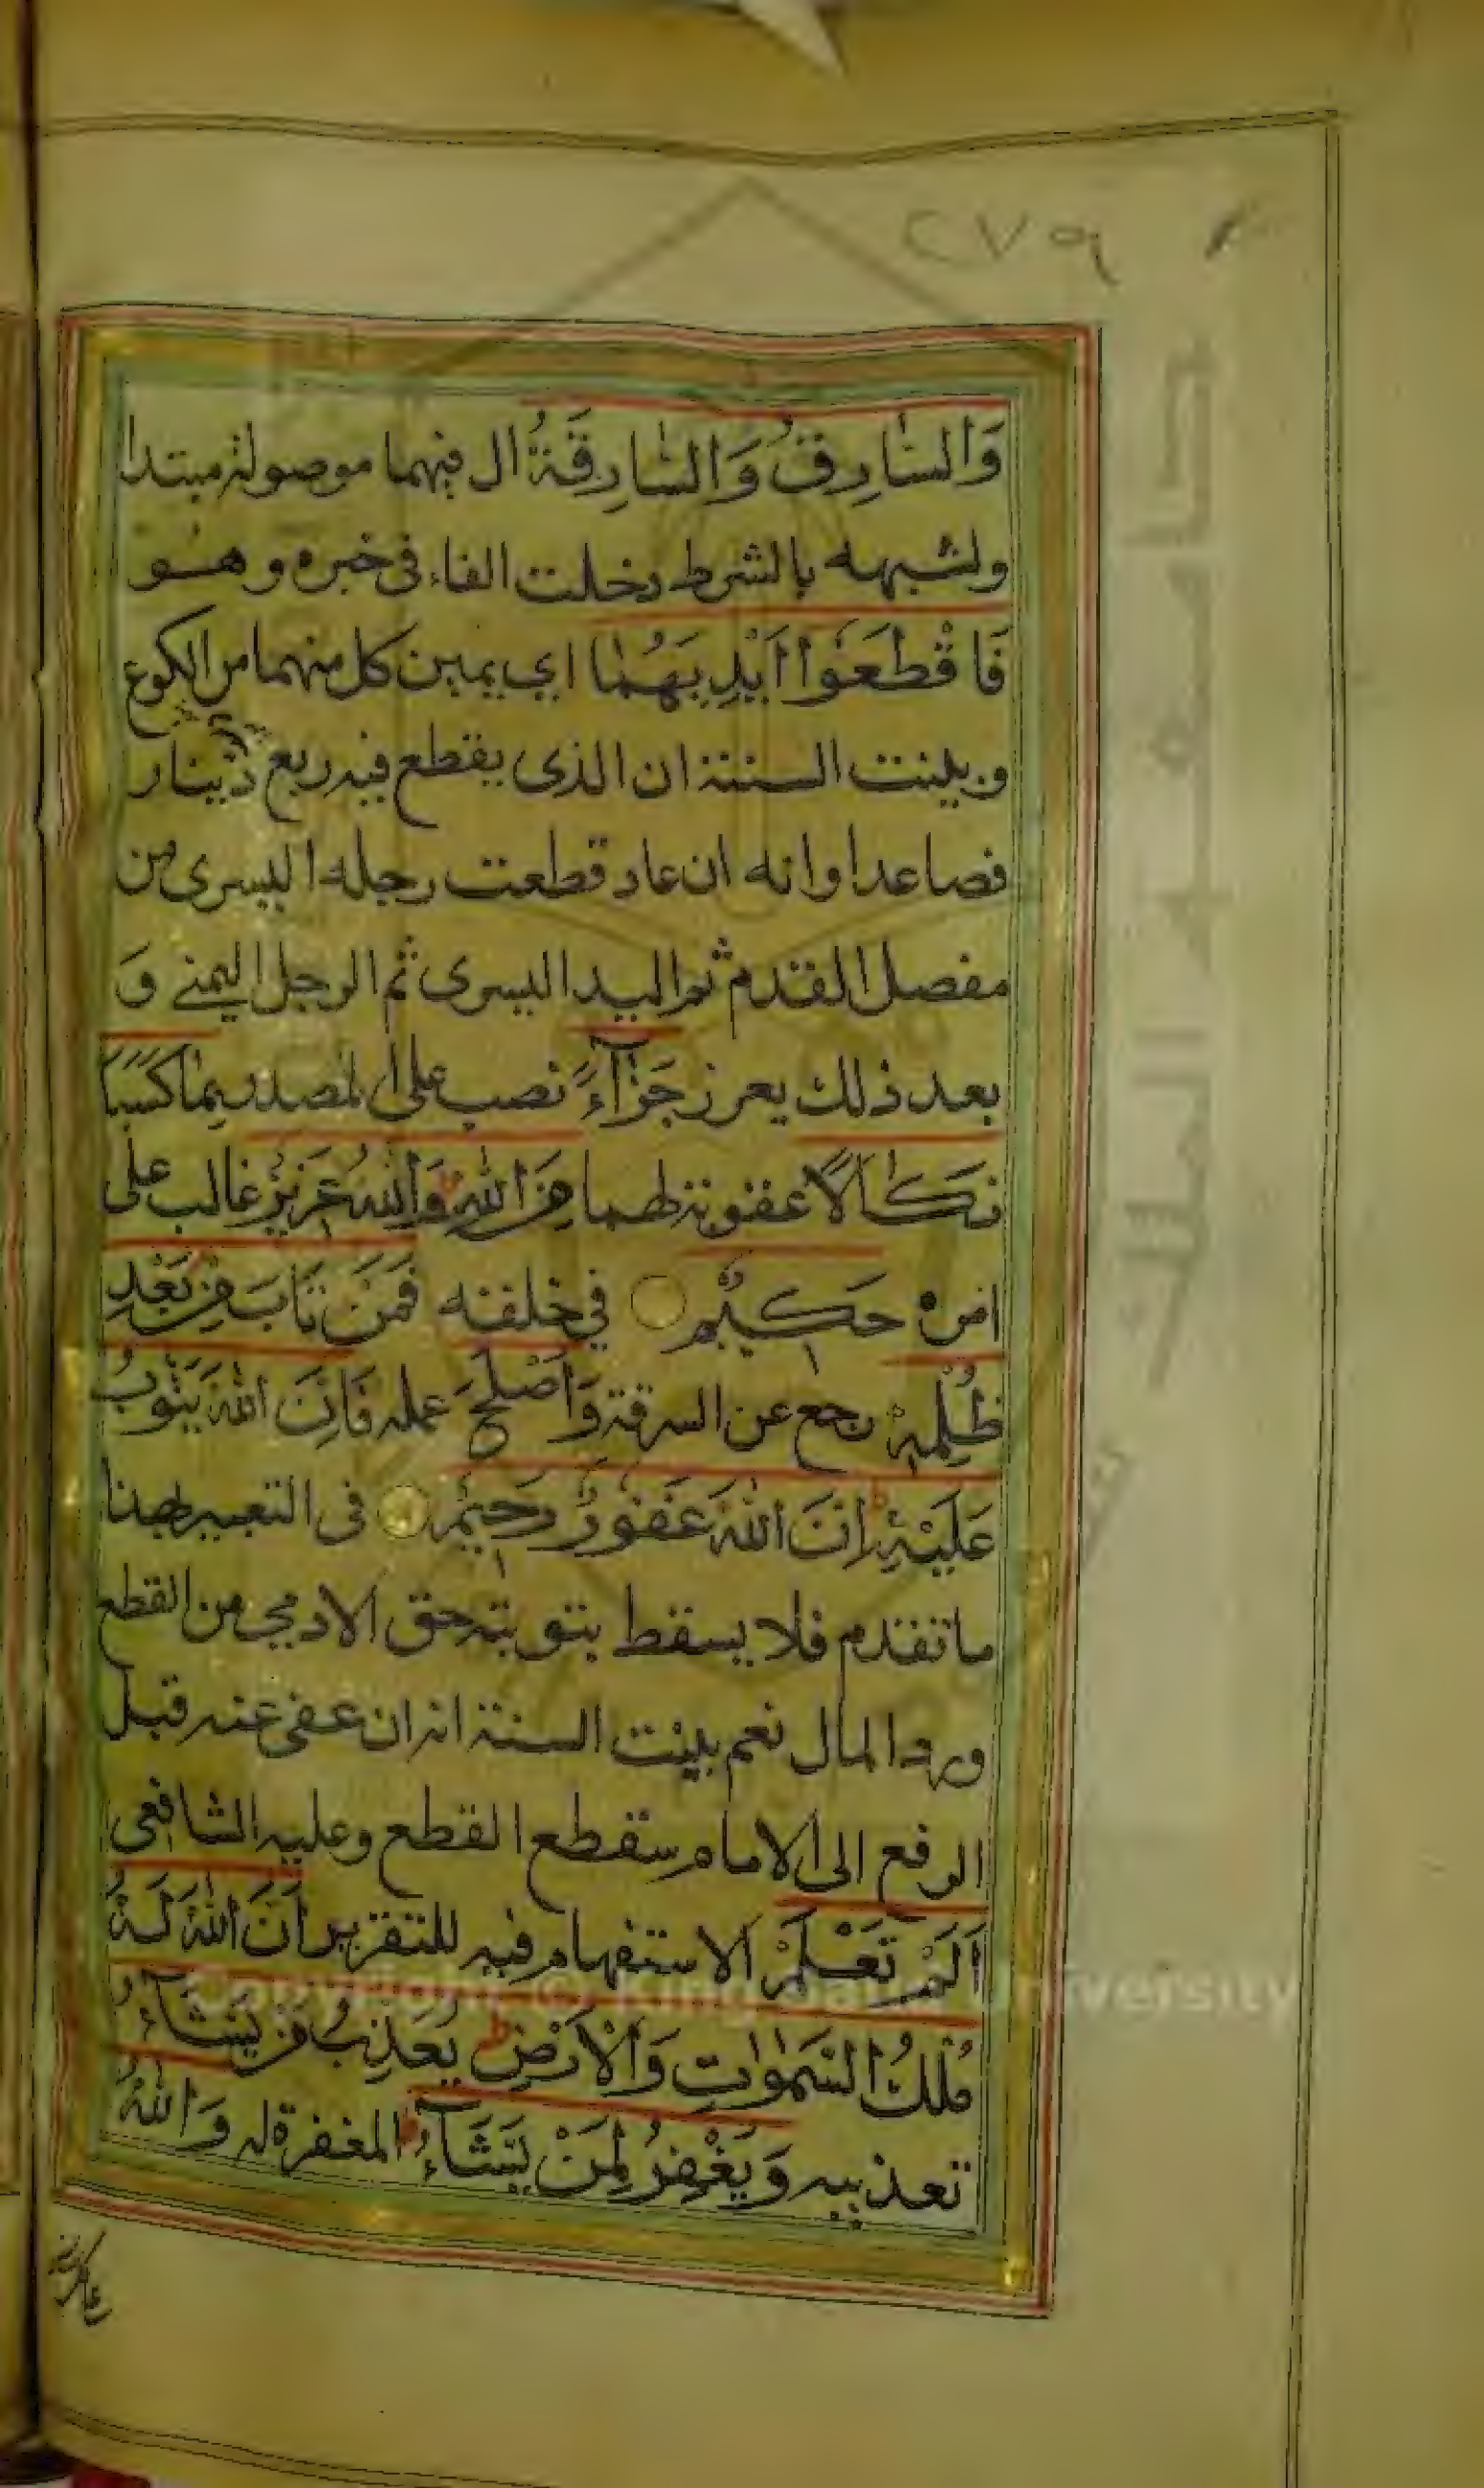 ٢٧٩
وَالسَّارِقُ وَالسَّارِقَةُ ال فيهما موصولة مبتدا
ولشبهه بالشرط دخلت الفاء في خبره وهو
فَاقْطَعُوا أَيْدِيَهُمَا اي يمين كل منهما من الكوع
وبينت السنة ان الذى يقطع فيه ربع دينار
فصاعدا وانه ان عاد قطعت رجله اليسرى من
مفصل القدم ثم اليد اليسرى ثم الرجل اليمنى وَ
بعد ذلك يعزر جَزَآءً نصب على المصدر بِمَا كَسَبَا
نَكَالًا عقوبة لهما مِنَ اللّٰهِ وَاللّٰهُ عَزِيزٌ غالب على
امره حَكِيمٌ في خلقه فَمَنْ تَابَ مِنْ بَعْدِ
ظُلْمِهِ رجع عن السرقة وَأَصْلَحَ عمله فَإِنَّ اللّٰهَ يَتُوبُ
عَلَيْهِ إِنَّ اللّٰهَ غَفُورٌ رَحِيمٌ فى التعبير بهذا
ما تقدم فلا يسقط بتوبته حق الادمي من القطع
ورد المال نعم بينت السنة انه ان عفى عنه قبل
الرفع الى الامام سقطع القطع وعليه الشافعى
اَلَمْ تَعْلَمْ الاستفهام فيه للتقرير أَنَّ اللّٰهَ لَهُ
مُلْكُ السَّمٰوٰتِ وَالْاَرْضِ يُعَذِّبُ مَنْ يَشَآءُ
تعذيبه وَيَغْفِرُ لِمَنْ يَشَآءُ المغفرة له وَاللّٰهُ
جامعة الملك
Copyright © King Saud University